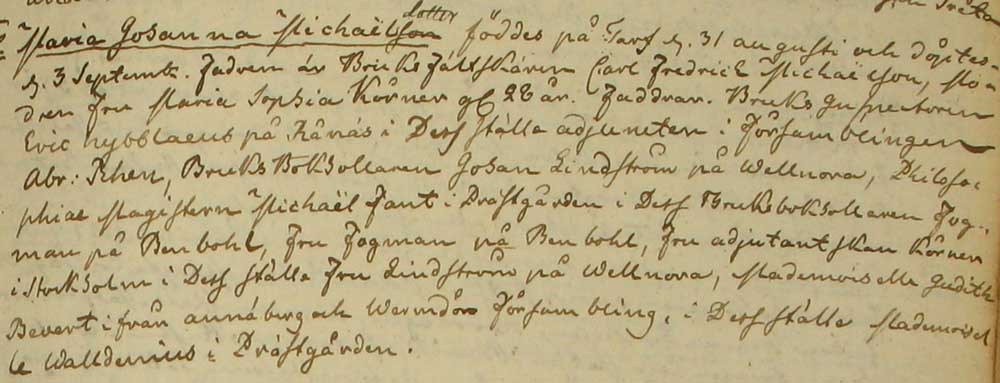 Maria Johanna Michaëlson dotter föddes på Tarf d. 31 augusti och döptes
d. 3 Septemb. Fadren är Bruks Fältskären Carl Fredrich Michaëlson, Mo-
dren Fru Maria Sophia Körner gl 28 år. Faddrar. Bruks Inspectoren
Eric nybblaeus på Rånäs i Dess ställe adjuncten i Församblingen
Abr: Rhen, Bruks Bokhollaren Johan Lindström på Wellnora, Philoso-
phiae Magistern Michaël Fant i Prästgården i Dess Bruksbokhollaren Fog-
man på Benbohl, Fru Fogman på Benbohl, Fru adjutantskan Körner
i Stockholm i Dess ställe Fru Lindström på Wellnora, Mademoiselle Judith
Bevert ifrån annäberg och Wermdös Försambling, i Dess ställe Mademoisel
le Walldenius i Prästgården.